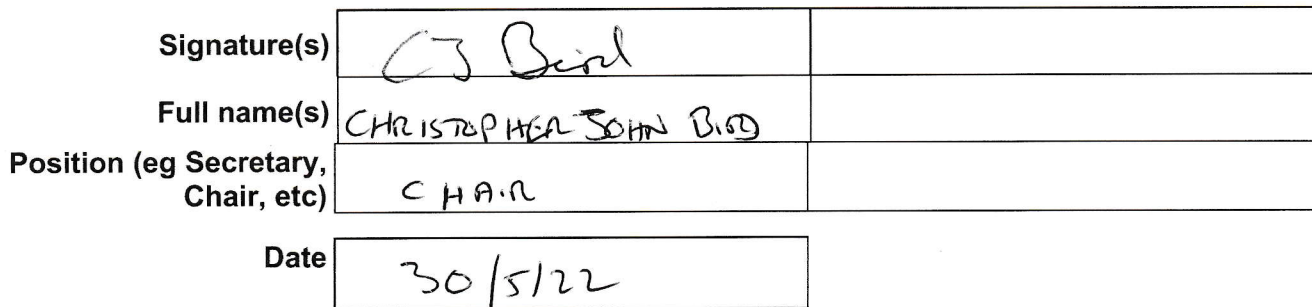 Signature(s) CJ Bird
Full name(s) CHRISTOPHER JOHN BIRD
Position (eg Secretary,
Chair, etc) CHAIR
Date 30/5/22